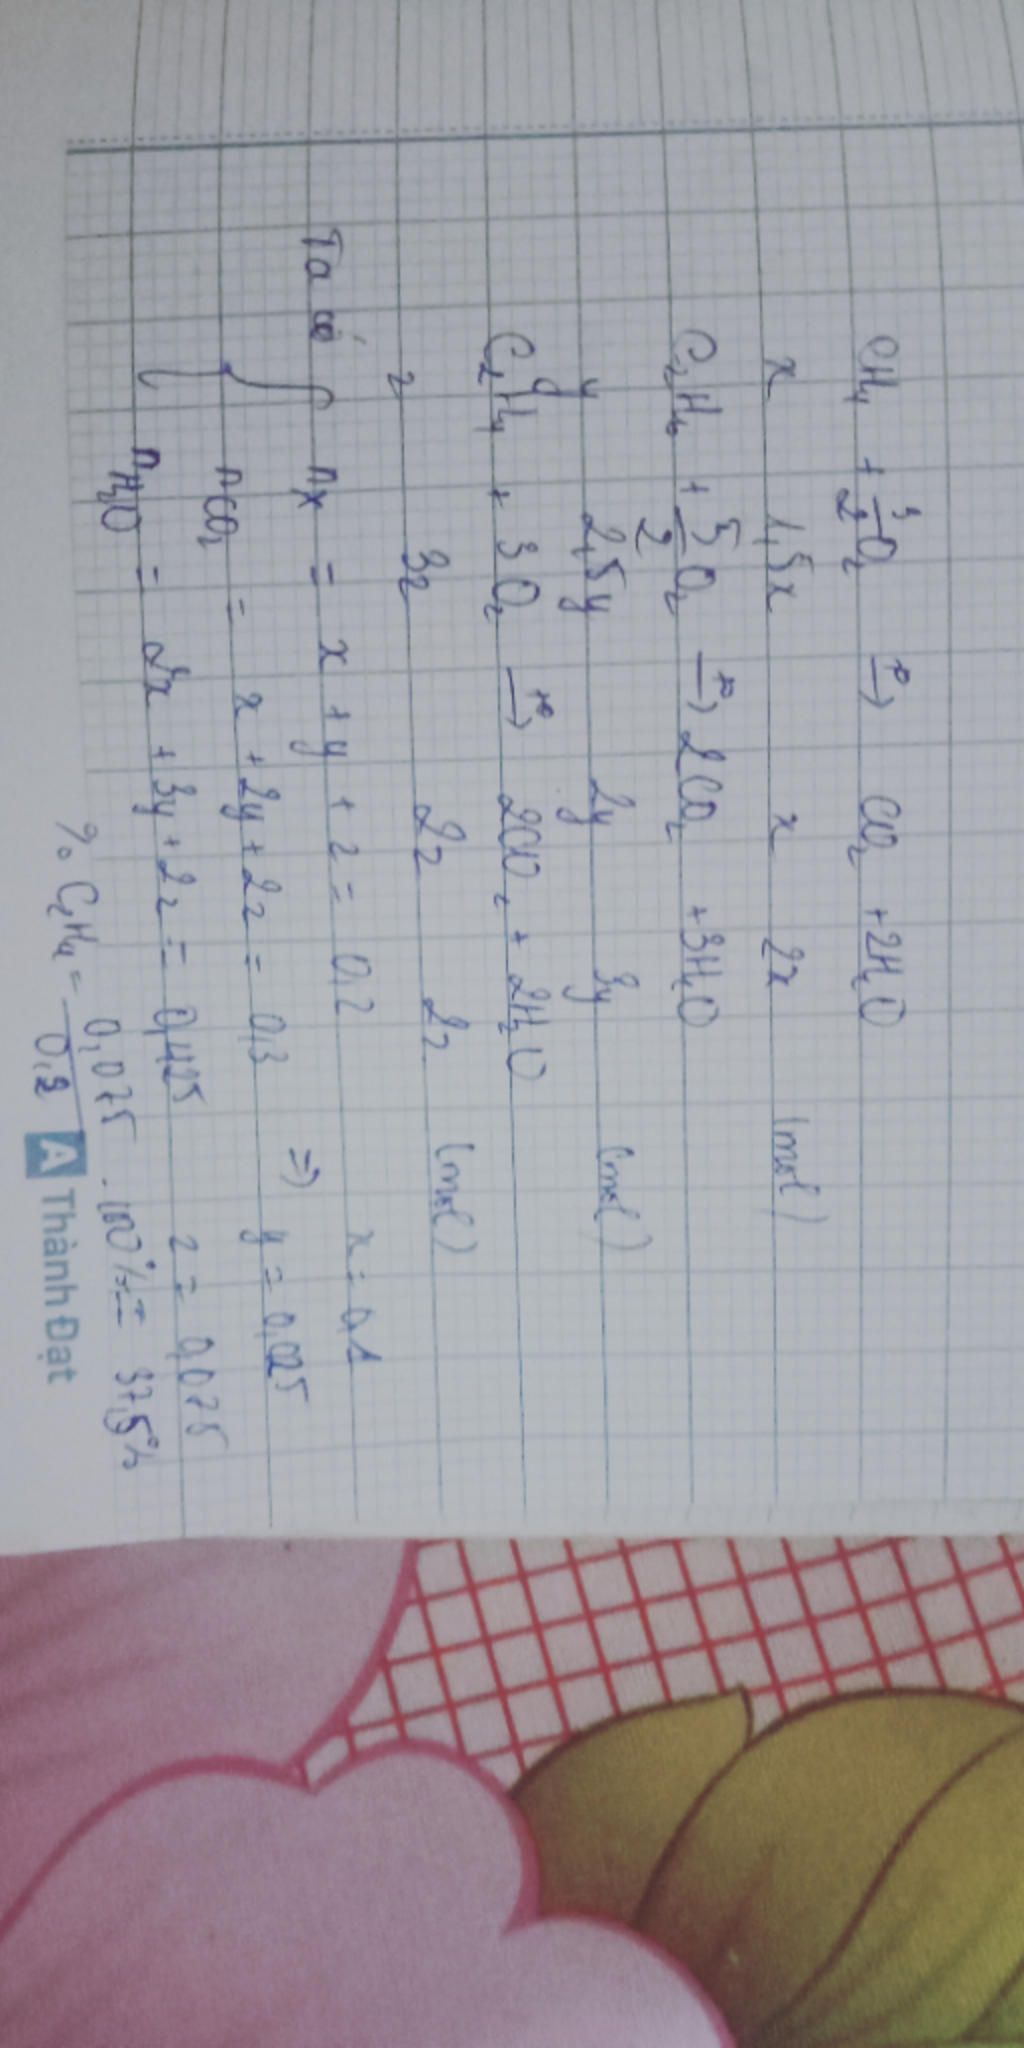 CH₄ + 3/2 O₂ t⁰→ CO₂ + 2H₂O
x 1,5x x 2x (mol)
C₂H₆ + 5/2 O₂ t⁰→ 2CO₂ + 3H₂O
y 2,5y 2y 3y (mol)
C₂H₄ + 3O₂ t⁰→ 2CO₂ + 2H₂O
z 3z 2z 2z (mol)
Ta có { nX = x + y + z = 0,2 x = 0,1
nCO₂ = x + 2y + 2z = 0,3 => y = 0,025
nH₂O = 2x + 3y + 2z = 0,425 z = 0,075
% C₂H₄ = 0,075 / 0,2 . 100% = 37,5%
A Thành Đạt